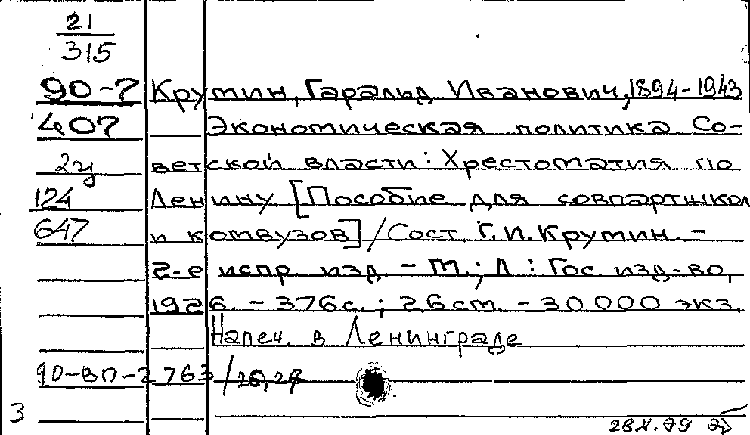 21
315
90-7 Крумин, Гаральд Иванович, 1894-1943
407 Экономическая политика Со-
2ц ветской власти: Хрестоматия по
124 Ленину [Пособие для совпартшкол
647 и комвузов] / Сост. Г.И. Крумин. -
2-е испр. изд. - М.; Л: Гос. изд-во,
1926. - 376с.; 26см. - 30000 экз.
Напеч. в Ленинграде
90-ВП-2763
3